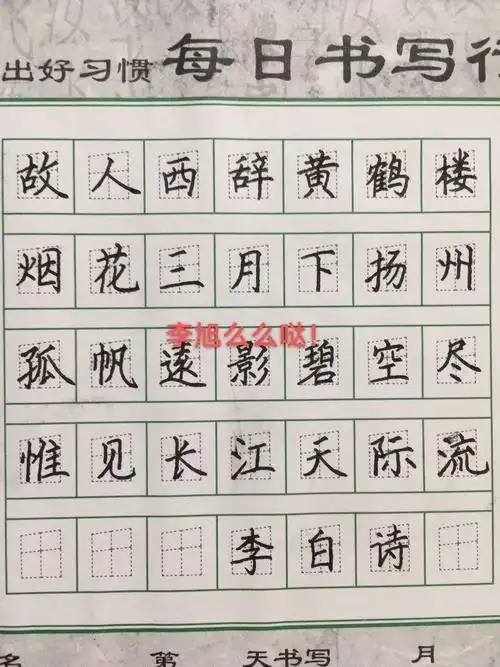 出好习惯 每日书写行
故人西辞黄鹤楼
烟花三月下扬州
李旭么么哒!
孤帆遠影碧空尽
惟见长江天际流
李白诗
名 第 天书写 月